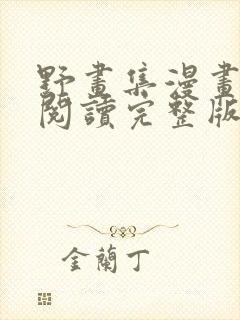 野畫集漫畫
閱讀完整版
金蘭丁